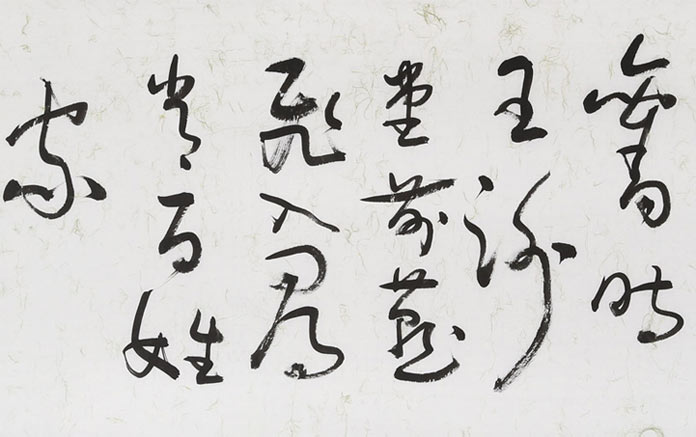 舊時
王謝
堂前燕
飛入尋
常百姓
家